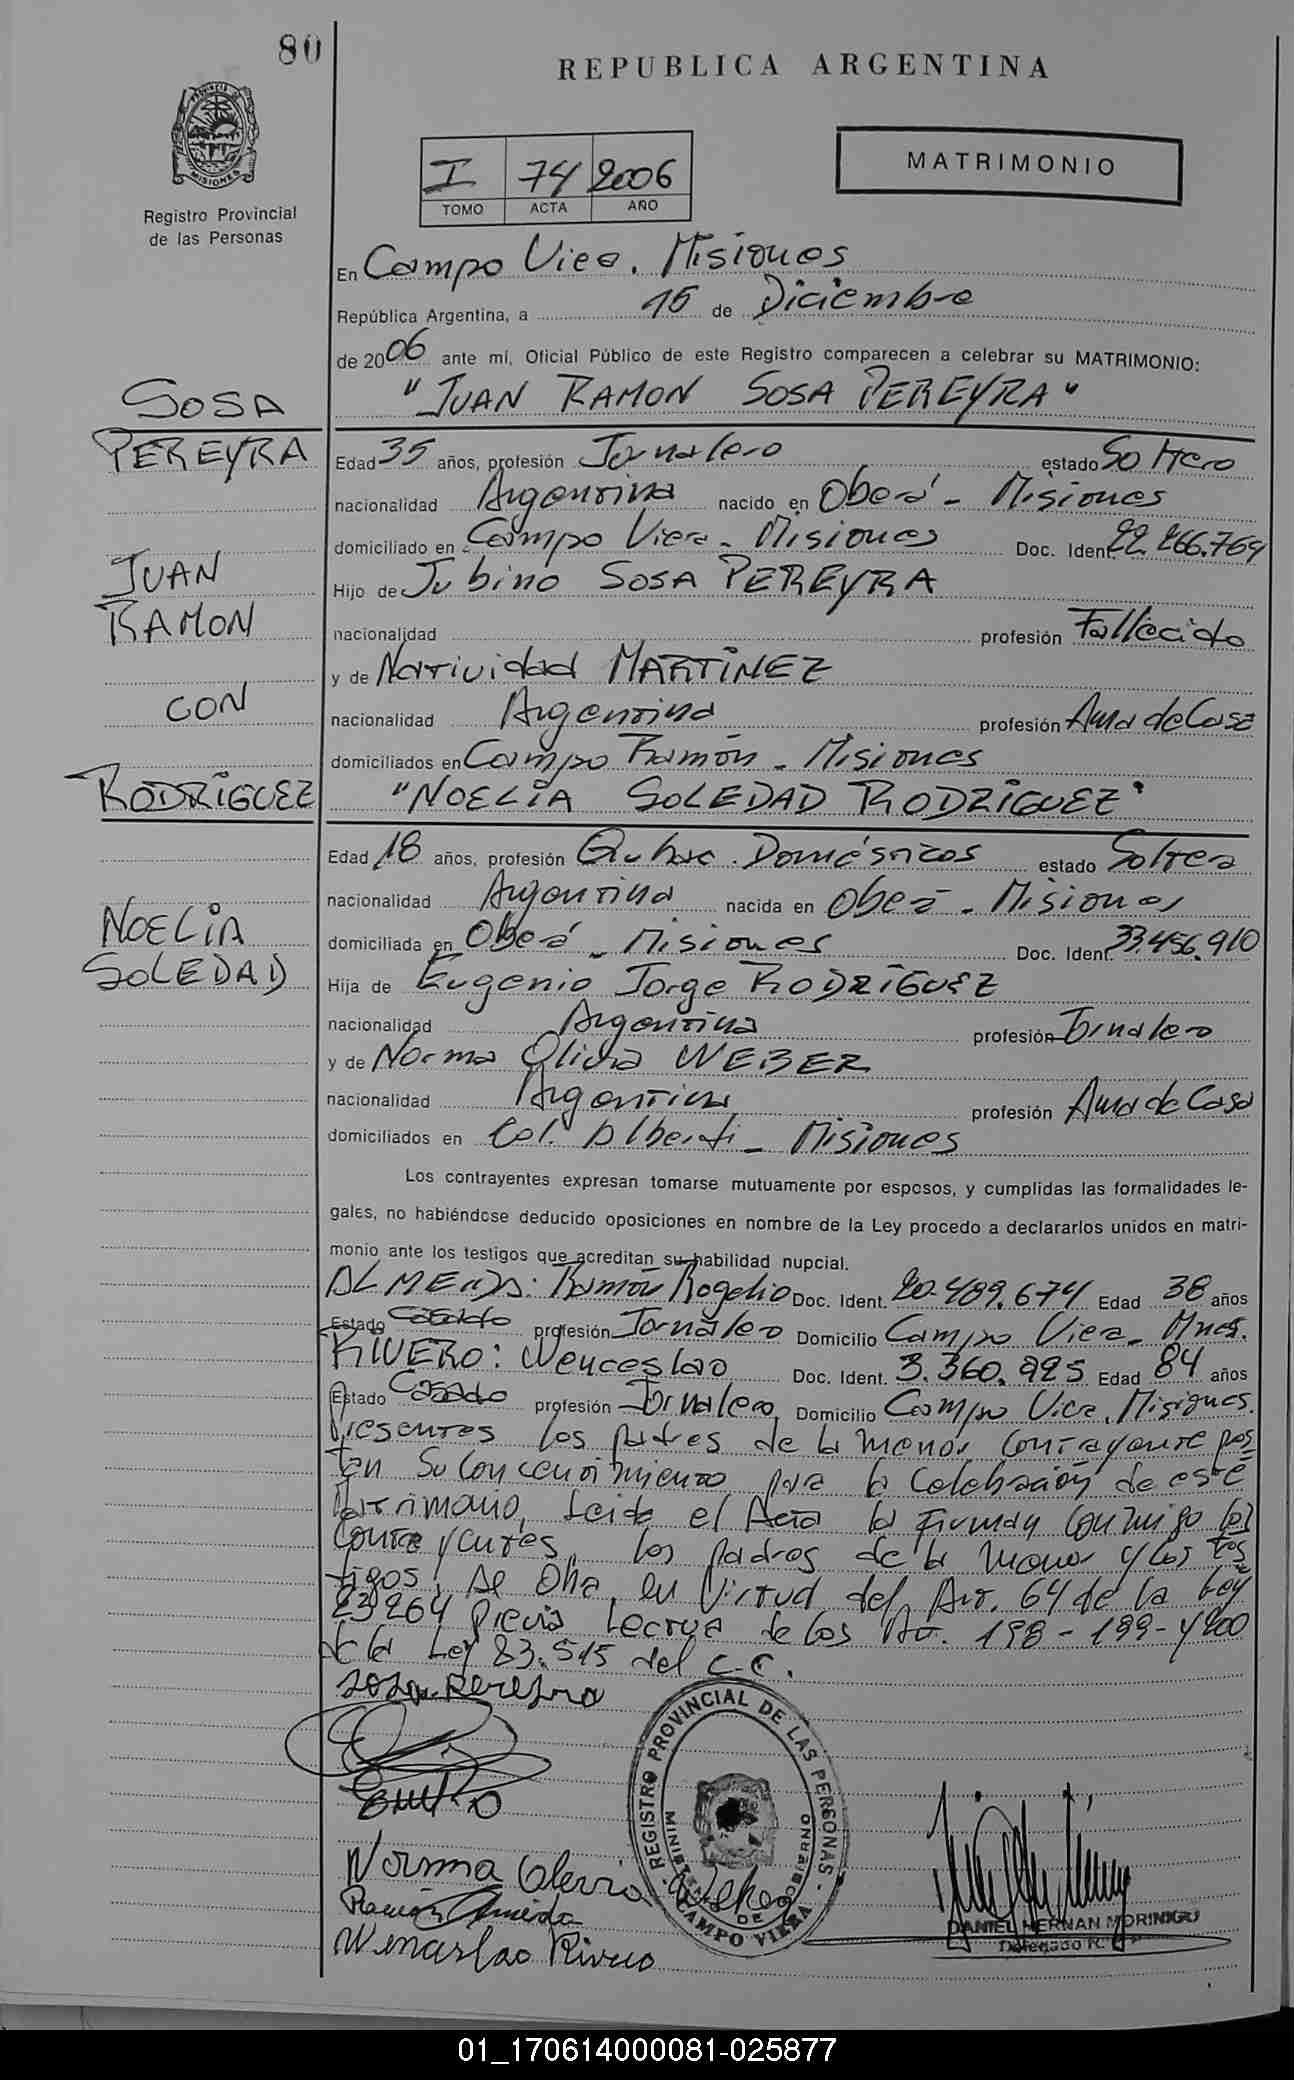 80
REPUBLICA ARGENTINA
PROVINCIA DE
MISIONES
Registro Provincial
de las Personas
I 74 2006
TOMO ACTA AÑO
MATRIMONIO
En Campo Viera. Misiones
República Argentina, a 15 de Diciembre
de 2006 ante mí, Oficial Público de este Registro comparecen a celebrar su MATRIMONIO:
SOSA
PEREYRA
JUAN
RAMON
CON
RODRÍGUEZ
NOELIA
SOLEDAD
"JUAN RAMON SOSA PEREYRA"
Edad 35 años, profesión Jornalero estado Soltero
nacionalidad Argentina nacido en Oberá - Misiones
domiciliado en Campo Viera - Misiones Doc. Ident. 22.266.769
Hijo de Jubino SOSA PEREYRA
nacionalidad profesión Fallecido
y de Natividad MARTÍNEZ
nacionalidad Argentina profesión Ama de Casa
domiciliados en Campo Ramón - Misiones
"NOELIA SOLEDAD RODRÍGUEZ"
Edad 18 años, profesión Quehac. Domésticos estado Soltera
nacionalidad Argentina nacida en Oberá - Misiones
domiciliada en Oberá - Misiones Doc. Ident. 33.456.910
Hija de Eugenio Jorge RODRÍGUEZ
nacionalidad Argentina profesión Jornalero
y de Norma WEBER
nacionalidad Argentina profesión Ama de Casa
domiciliados en Col. Alberdi - Misiones
Los contrayentes expresan tomarse mutuamente por esposos, y cumplidas las formalidades le-
gales, no habiéndose deducido oposiciones en nombre de la Ley procedo a declararlos unidos en matri-
monio ante los testigos que acreditan su habilidad nupcial.
ALMEIDA: Ramón Rogelio Doc. Ident. 20.489.674 Edad 38 años
Estado Casado profesión Jornalero Domicilio Campo Viera - Mnes.
RIVERO: Wenceslao Doc. Ident. 3.360.225 Edad 84 años
Estado Casado profesión Jornalero Domicilio Campo Viera. Misiones.
Presentes los padres de la menor contrayente pres
tan su concentimiento para la celebración de este
Matrimonio, leida el Acta la firman conmigo los
contrayentes, los padres de la menor y los tes
tigos, se obra en virtud del Art. 64 de la Ley
23264 Previa Lectura de los Art. 198-199-y 200
de la Ley 23.515 del C.C.
sosa Pereyra
Norma Weber
Ramón Almeida
Wenceslao Rivero
REGISTRO PROVINCIAL DE LAS PERSONAS
MINISTERIO DE GOBIERNO
CAMPO VIERA
DANIEL HERNAN MORINIGO
Delegado R.
01_170614000081-025877